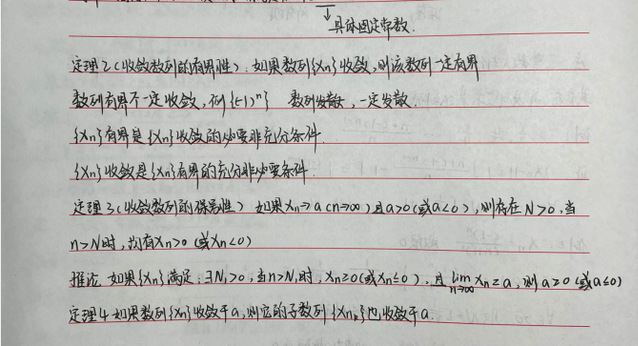 具体固定常数.
定理2(收敛数列的有界性):如果数列{Xn}收敛,则该数列一定有界
数列有界不一定收敛,例{(-1)ⁿ} 数列发散,一定发散.
{Xn}有界是{Xn}收敛的必要非充分条件.
{Xn}收敛是{Xn}有界的充分非必要条件.
定理3(收敛数列的保号性) 如果Xn→a(n→∞)且a>0(或a<0),则存在N>0,当
n>N时,均有Xn>0(或Xn<0)
推论 如果{Xn}满足:∃N₁>0,当n>N₁时,Xn≥0(或Xn≤0),且 lim n→∞ Xn=a,则a≥0(或a≤0)
定理4 如果数列{Xn}收敛于a,则它的子数列{Xnₖ}也收敛于a.